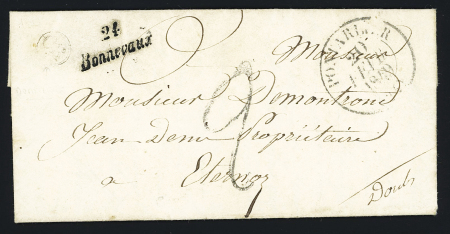 24
Bonnevaux
PONTARLIER
30
Monsieur
Monsieur Demontrond
Jean Denis Propriétaire
a Eternoz
Doubs